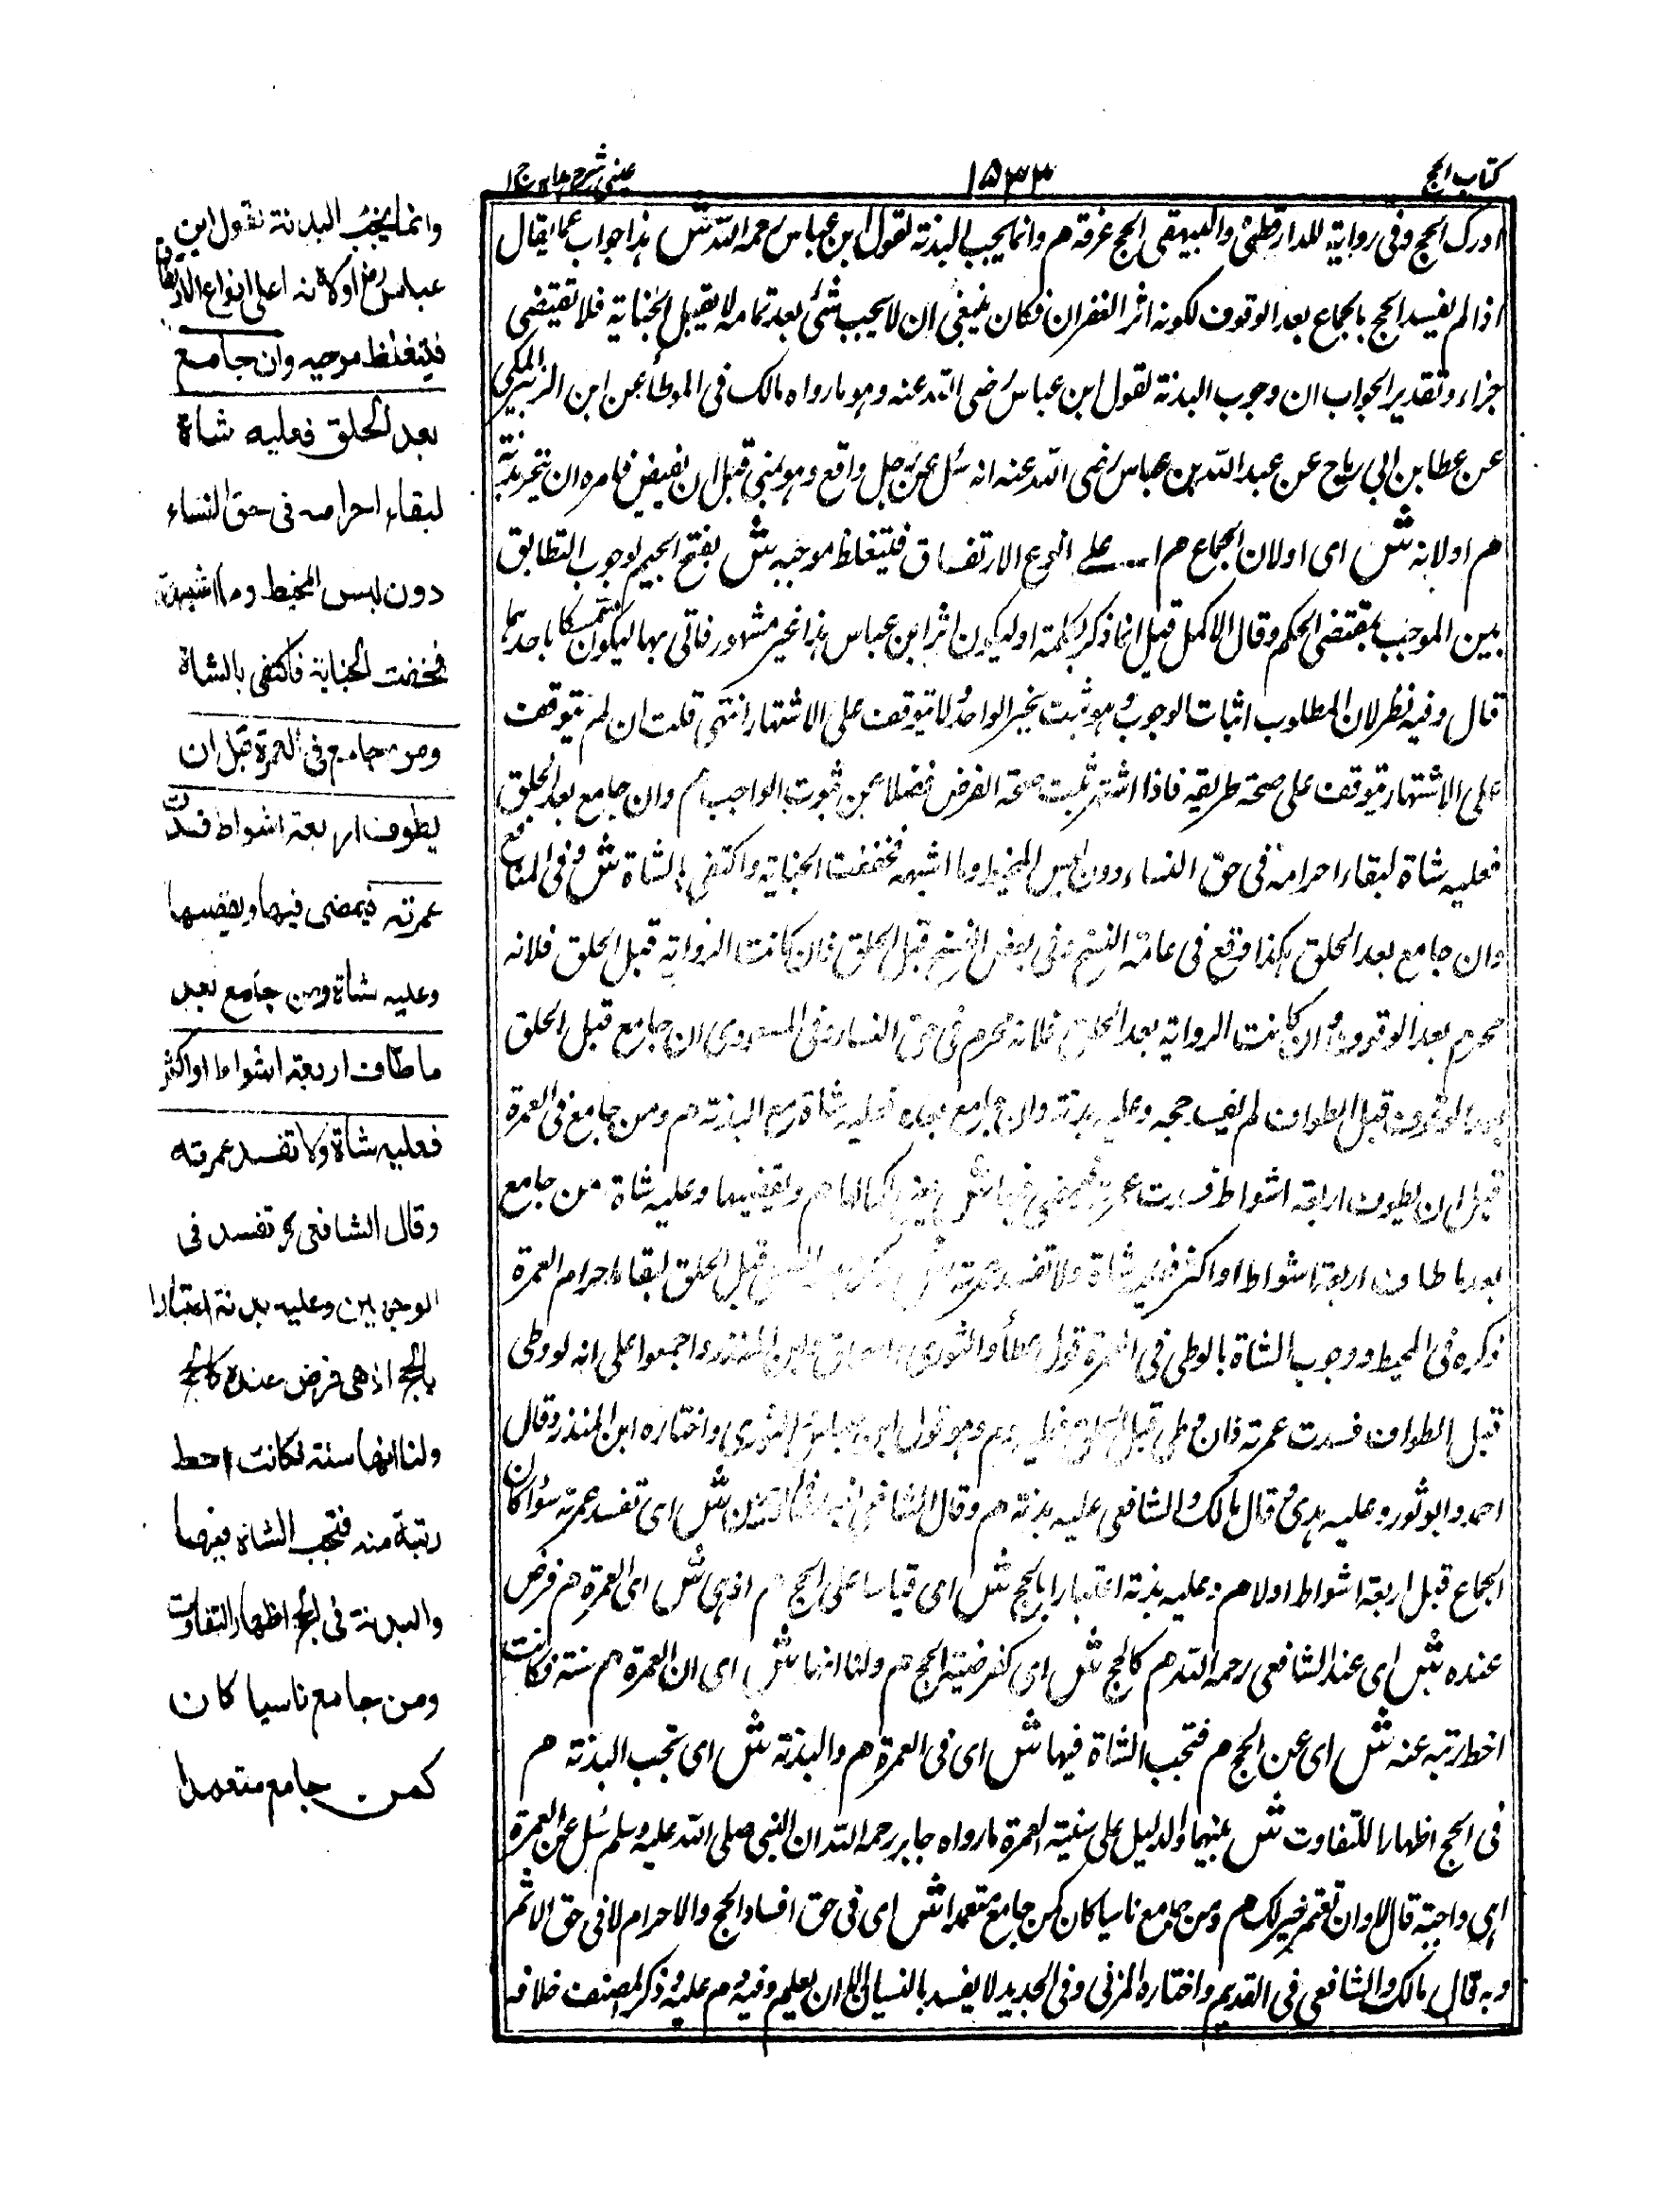 كتاب الحج
١٥٣٣
عینی شرح ہدایہ ج ١
ادرك الحج وفی روایة للدار قطنی والبیہقی الحج عرفة هم وانما یجب البدنة لقول ابن عباس رحمه الله ش هذا جواب عما یقال
اذا لم یفسد الحج بالجماع بعد الوقوف لكونه اثر الغفران فكان ینبغی ان لا یجب شئ بعد تمامه لا یقبل الجنایة فلا تقتضی
جزاء وتقدیر الجواب ان وجوب البدنة لقول ابن عباس رضی الله عنه وهو ما رواه مالك فی الموطأ عن ابن الزبیر المكی
عن عطا بن ابی رباح عن عبد الله بن عباس رضی الله عنه انه سئل عن رجل واقع وهو بمنی قبل ان یفیض فامره ان ینحر بدنة
هم او لانه ش ای او لان الجماع هم اعلی انواع الارتفاق فیتغلظ موجبه ش بفتح الجیم لوجوب التطابق
بین الموجب بمقتضی الحكم وقال الاكمل قیل انما ذكر بكلمة او لیكون اثر ابن عباس هذا غیر مشهور فاتی بها لیكون متمسكا باحدهما
قال وفیه نظر لان المطلوب اثبات الوجوب وهو ثبت بخبر الواحد ولا یتوقف علی الاشتهار انتهی قلت ان لم یتوقف
علی الاشتهار یتوقف علی صحة طریقه فاذا اشتهر ثبت صحة الفرض فضلا عن ثبوت الواجب هم وان جامع بعد الحلق
فعلیه شاة لبقاء احرامه فی حق النساء دون لبس المخیط وما اشبهه فخففت الجنایة واكتفی بالشاة ش وفی المنافع
وان جامع بعد الحلق هكذا وقع فی عامة النسخ وفی بعض النسخ قبل الحلق فان كانت الروایة قبل الحلق فلانه
محرم بعد الوقوف وان كانت الروایة بعد الحلق فلانه محرم فی حق النساء وفی المسعودی ان جامع قبل الحلق
بعد الوقوف قبل الطواف لم یفسد حجه وعلیه بدنة وان جامع بعده فعلیه شاة مع البدنة هم ومن جامع فی العمرة
قبل ان یطوف اربعة اشواط فسدت عمرته فیمضی فیها ش یعنی اكمالها هم ویقضیها وعلیه شاة ومن جامع
بعد ما طاف اربعة اشواط او اكثر فعلیه شاة ولا تفسد عمرته ش قبل الحلق لبقاء احرام العمرة
ذكره فی المحیط ووجوب الشاة بالوطی فی العمرة قول عطأ والثوری واسحاق وابن المنذر واجمعوا علی انه لو وطی
قبل الطواف فسدت عمرته فان وطی قبل الحلق فعلیه دم وهو قول ابن عباس والثوری واختاره ابن المنذر وقال
احمد وابو ثور وعلیه هدی وقال مالك والشافعی علیه بدنة هم وقال الشافعی تفسد فی الوجهین ش ای تفسد عمرته سواء كان
الجماع قبل اربعة اشواط اولا هم وعلیه بدنة اعتبارا بالحج ش ای قیاسا علی الحج هم اذ هی ش ای العمرة هم فرض
عنده ش ای عند الشافعی رحمه الله هم كالحج ش ای كفرضیة الحج هم ولنا انها ش ای ان العمرة هم سنة فكانت
احط رتبة عنه ش ای عن الحج هم فتجب الشاة فیها ش ای فی العمرة هم والبدنة ش ای تجب البدنة هم
فی الحج اظهارا للتفاوت ش بینهما والدلیل علی سنیة العمرة ما رواه جابر رحمه الله ان النبی صلی الله علیه وسلم سئل عن العمرة
اهی واجبة قال لا وان تعتمر خیر لك هم ومن جامع ناسیا كان كمن جامع متعمدا ش ای فی حق افساد الحج والاحرام لا فی حق الاثم
وبه قال مالك والشافعی فی القدیم واختاره المزنی وفی الجدید لا یفسد بالنسیان الا ان یعلم وفیه دم علیه وذكر المصنف خلافه
وانما یجب البدنة لقول ابن
عباس رض او لانه اعلی انواع الارتفاق
فیتغلظ موجبه وان جامع
بعد الحلق فعلیه شاة
لبقاء احرامه فی حق النساء
دون لبس المخیط وما اشبهه
فخففت الجنایة فاكتفی بالشاة
ومن جامع فی العمرة قبل ان
یطوف اربعة اشواط فسدت
عمرته فیمضی فیها ویقضیها
وعلیه شاة ومن جامع بعد
ما طاف اربعة اشواط او اكثر
فعلیه شاة ولا تفسد عمرته
وقال الشافعی رح تفسد فی
الوجهین وعلیه بدنة اعتبارا
بالحج اذ هی فرض عنده كالحج
ولنا انها سنة فكانت احط
رتبة منه فتجب الشاة فیها
والبدنة فی الحج اظهارا للتفاوت
ومن جامع ناسیا كان
كمن جامع متعمدا